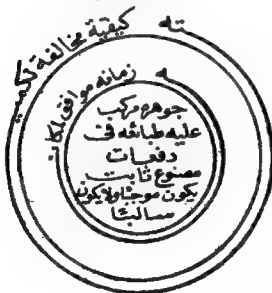 كيفية مخالفة لكميته
زمانه موافق لمكانه
جوهره مركب
عليه طبائعه في
دفعات
مصنوع ثابت
يكون موجبا ولا يكون